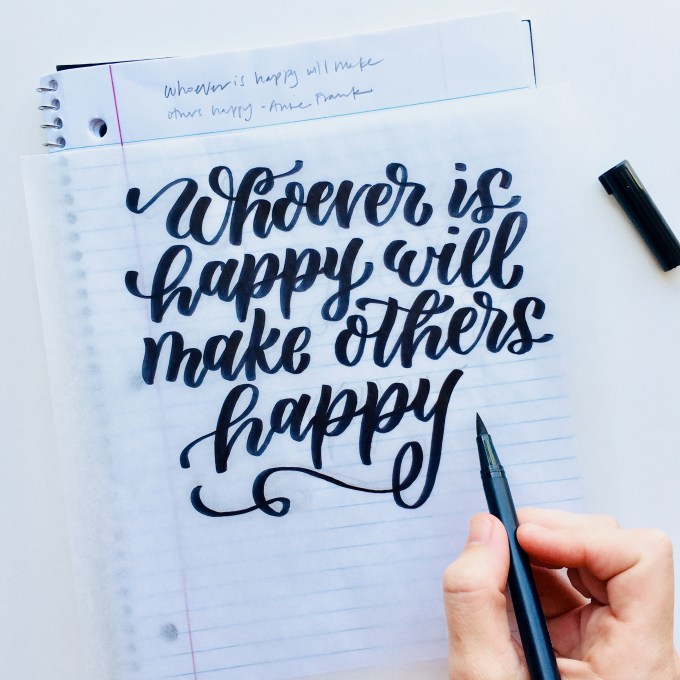 whoever is happy will make
others happy - Anne Frank
Whoever is
happy will
make others
happy